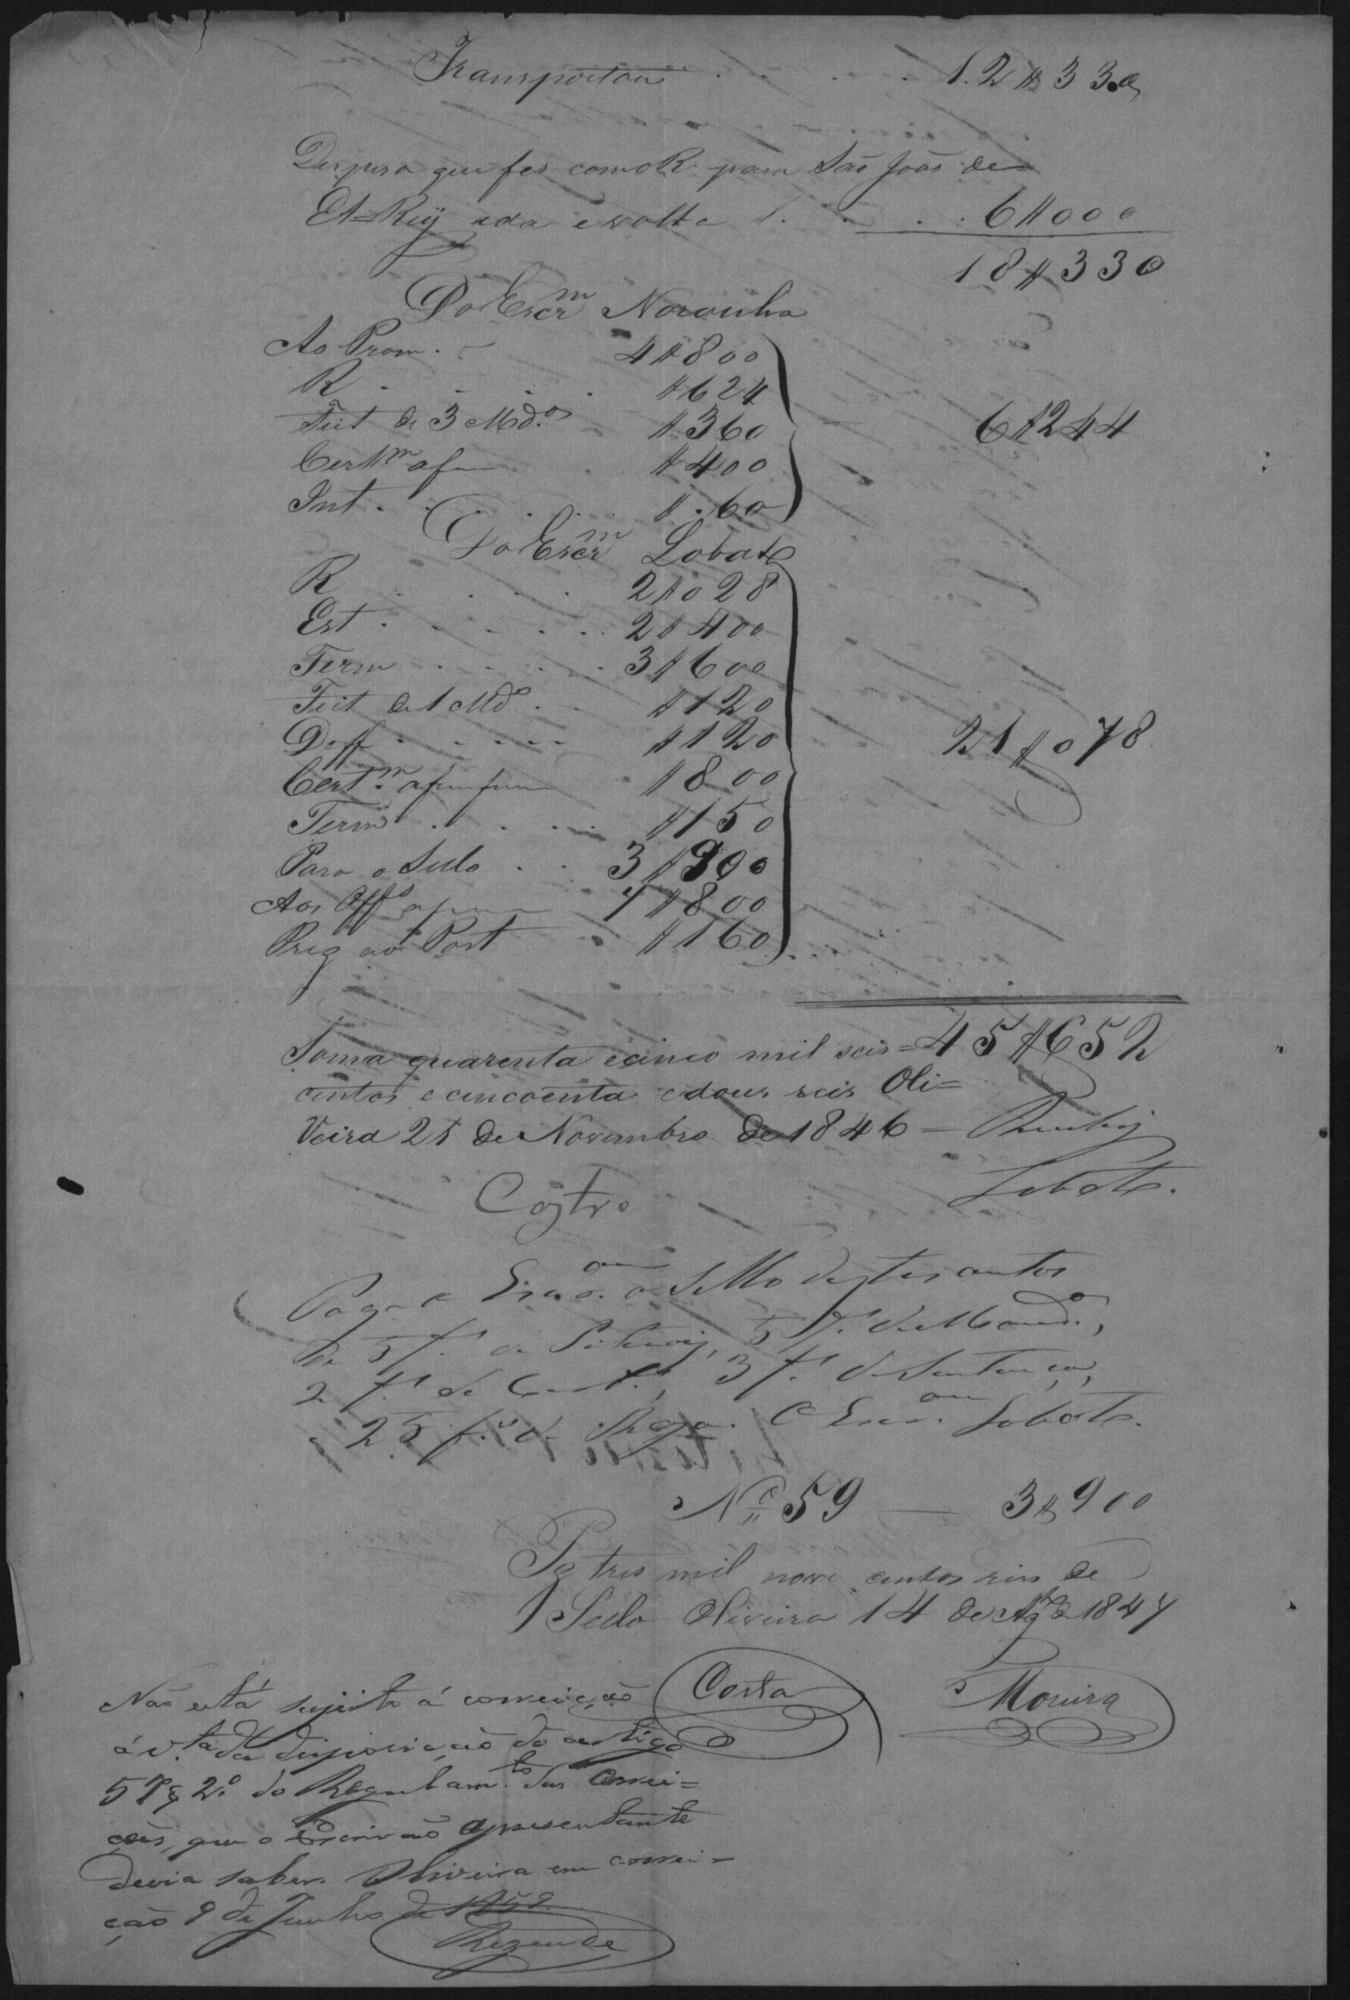 Transportou . . . . 12$330
Despesa que fes com o R. para São João de
El-Rey ida e volta . . . 6$000
18$330
Do Escr.m Noronha
Ao Prom. 4$800
R . . . . $624
Feit de 3 Md.os $360
6$244
Cert.m $400
Int . . . $.60
Do Escr.m Lobato
R . . . . 2$028
Est . . . . . 2$400
Term . . . . 3$600
Feit de 1 Md.o . . $120
21$078
Deff . . . . $120
Cert.m $800
Term . . . . $150
Para o Sello . . 3$900
Aos Off.s 7$800
Preg ao Port . $160
Soma quarenta e cinco mil seis= 45$652
centos e cincoenta e dous reis Oli=
veira 21 de Novembro de 1846 —
Lobato.
Castro
Pague o Escr.am o Sello destes autos
de 5 f.s de 5 f.s de Mand.o,
2 f.s de Cert., 3 f.s de Sentença,
25 f.s de O Escr.am Lobato.
N.o 59 — 3$900
Pg tres mil nove centos reis de
Sello Oliveira 14 de Ag.to de 1847
Costa Moreira
Não está sujeito á correição
á v.ta da disposição do artigo
57 § 2.o do Regulam.to das Correi=
ções, que o Escrivão apresentante
devia saber. Oliveira em correi=
ção 9 de Junho de 1852.
Rezende